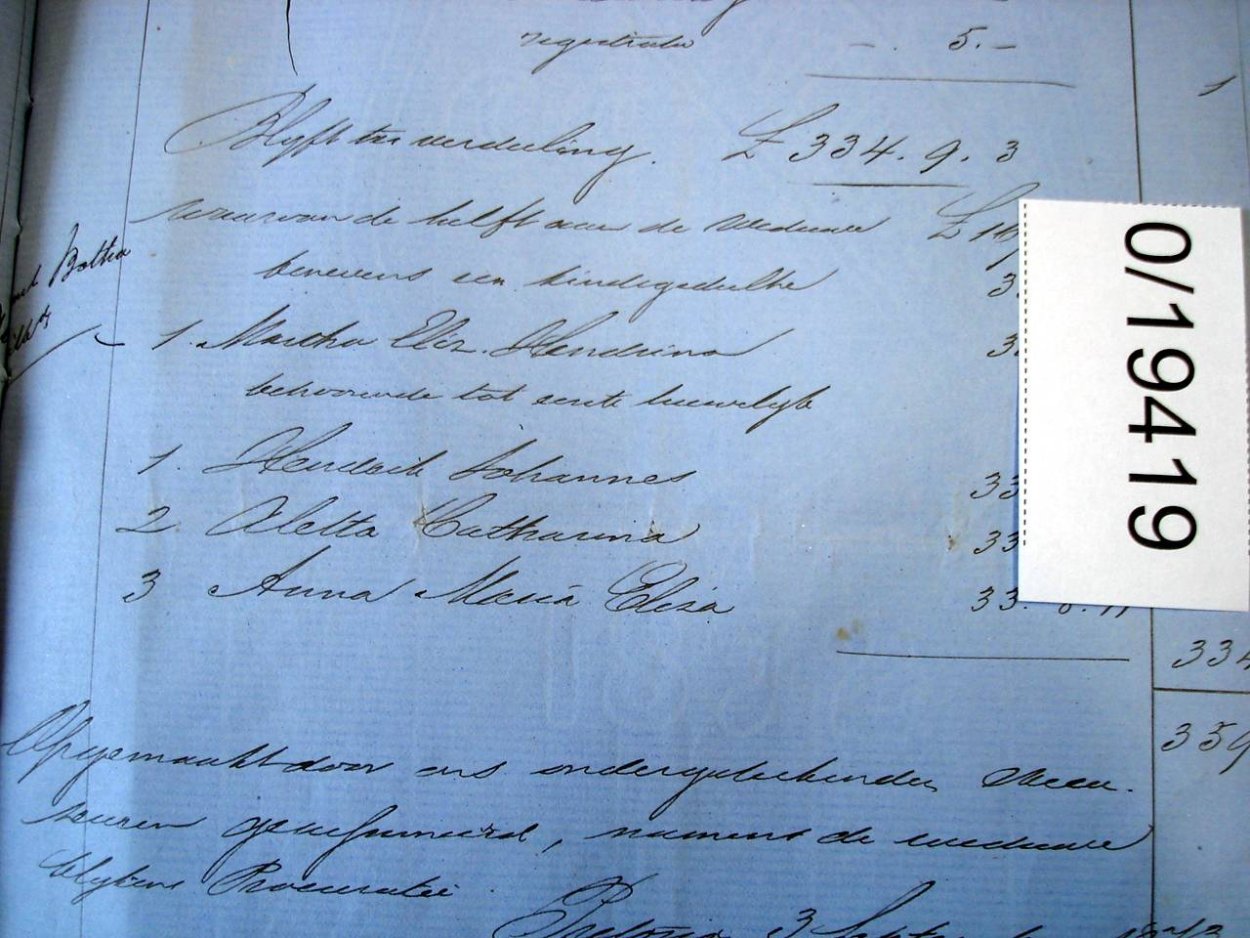 registratie — . 5. —
1
Blyft ter verdeeling. £ 334. 9. 3
waarvan de helft aan de Weduwe £ 16
benevens een kindsgedeelte 3
Botha
1. Martha Eliz. Hendrina 3
behoorende tot eerste huwelyk
1. Hendrik Johannes 33
2. Aletta Catharina 33
3 Anna Maria Eliza 33. 8. 11
334
Opgemaakt door ons ondergeteekenden Execu-
teuren geassumeerd, namens de weduwe
blykens Procuratie 359
Pretoria 3 September 1873
0/19419